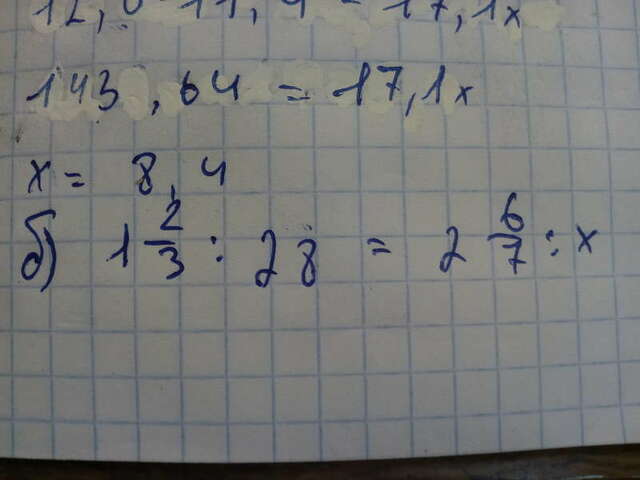 12,6 · 11,4 = 17,1x
143,64 = 17,1x
x = 8,4
б) 1 2/3 : 28 = 2 6/7 : x